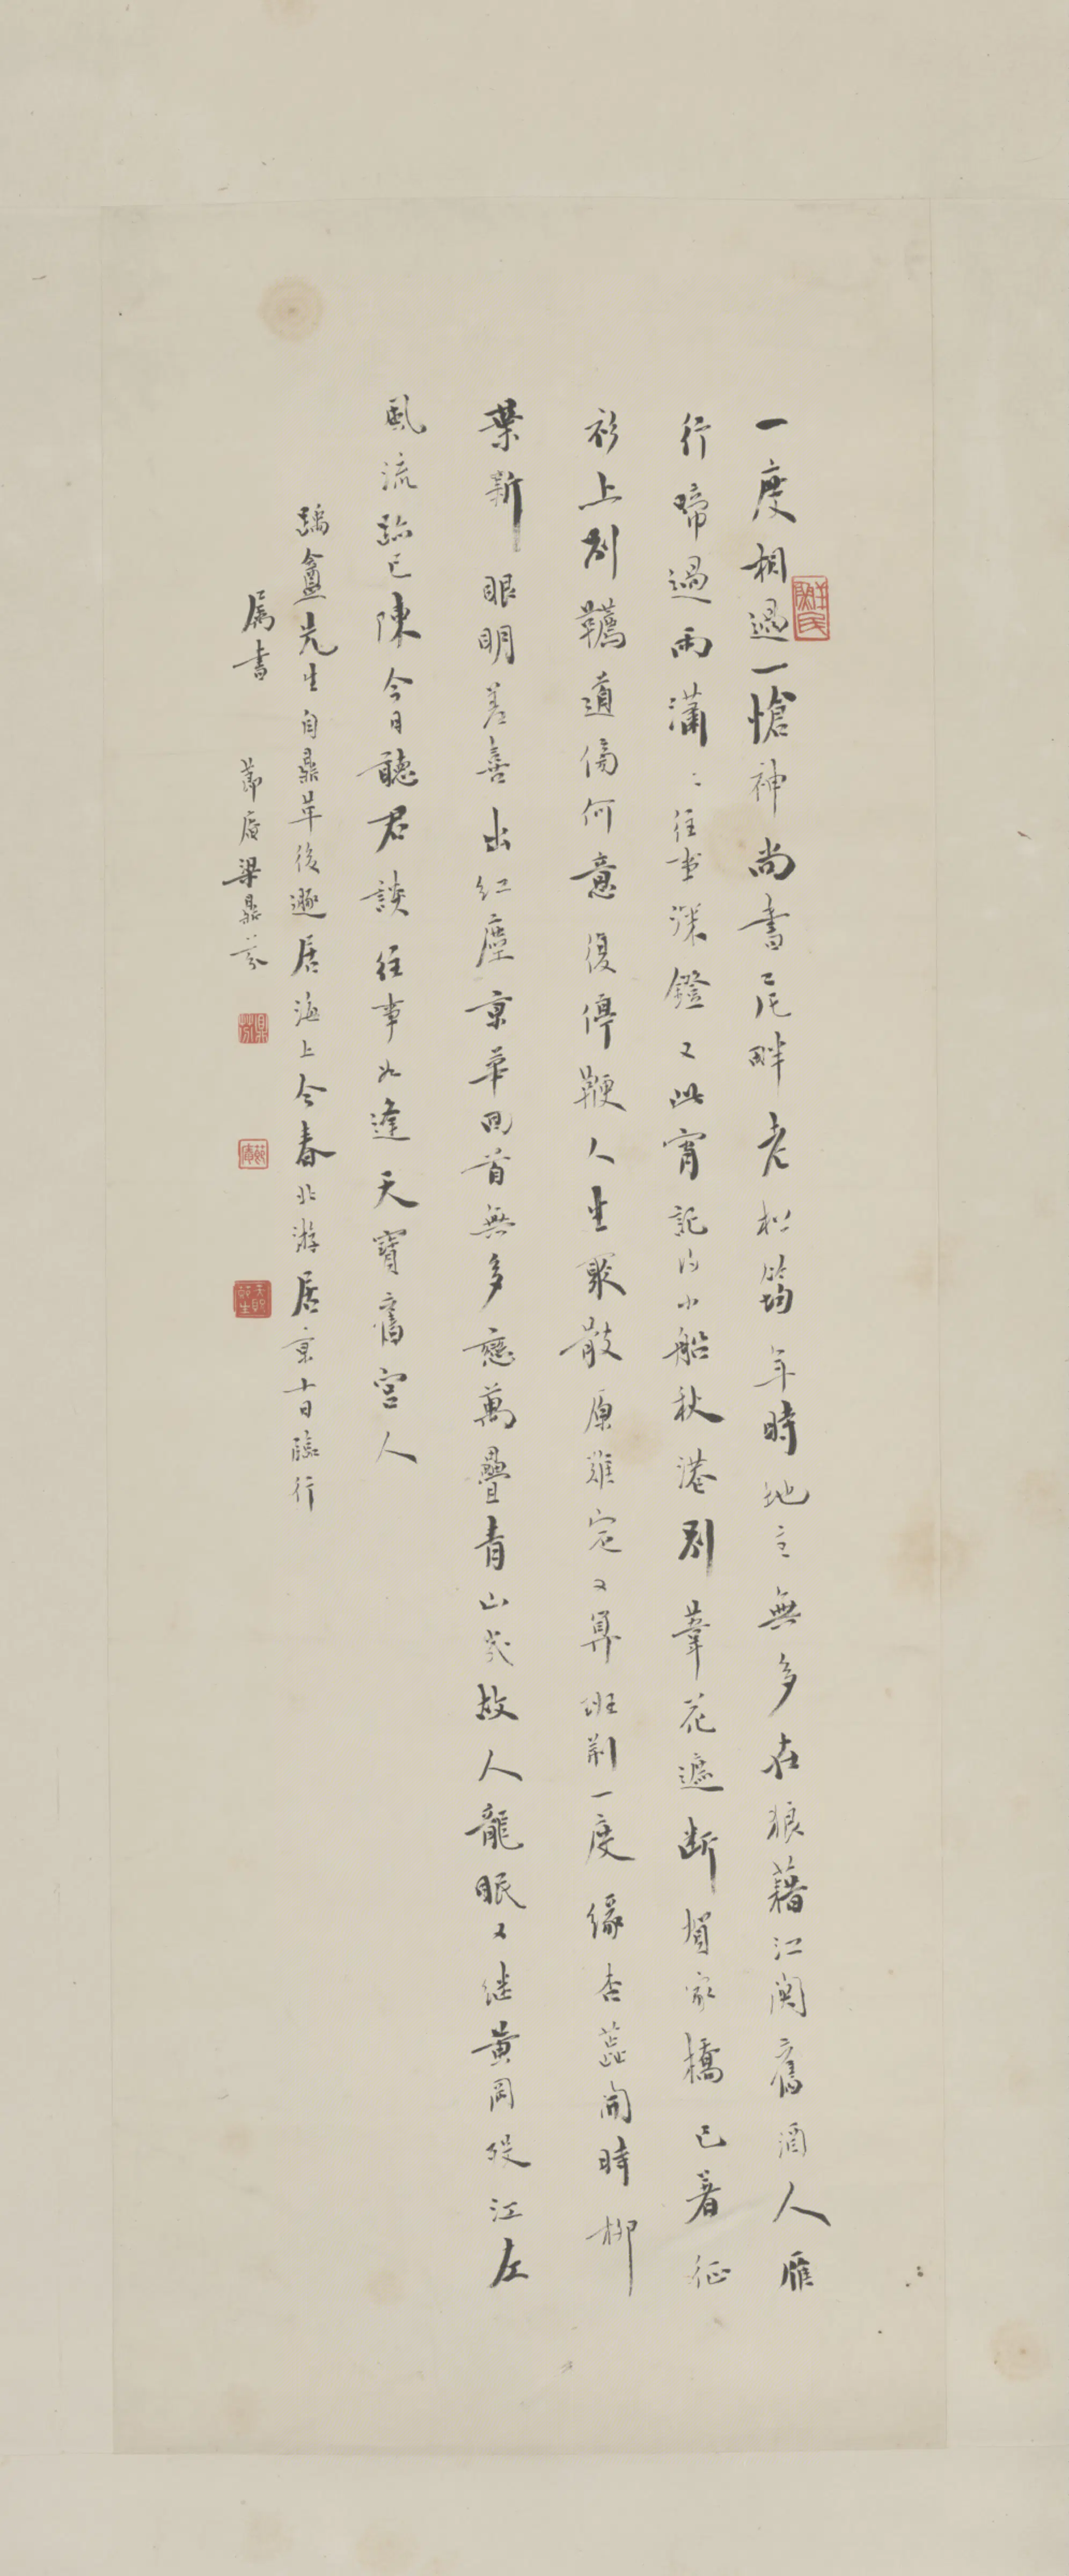 一度相過一愴神尚書尾畔老松筠年時地主無多在狼藉江關舊酒人雁
行啼過雨瀟〻往事深鐙又此宵記得小船秋港別葦花遮斷賀家橋已著征
衫上別韉道傍何意復停鞭人生聚散原難定又算班荊一度緣杏蕊開時柳
葉新眼明差喜出紅塵京華回首無多戀萬疊青山幾故人龍眠又繼黃岡從江左
風流跡已陳今日聽君談往事如逢天寶舊宮人
蹻盦先生自鼎革後遯居海上今春北游居京十日臨行
屬書 節庵梁鼎芬